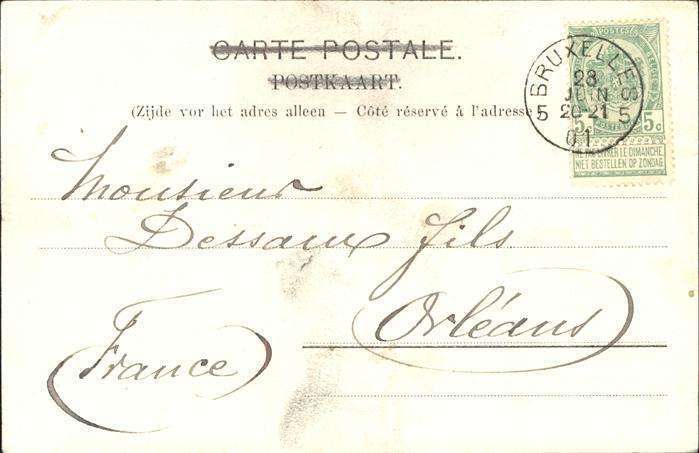 CARTE POSTALE.
POSTKAART.
(Zijde vor het adres alleen — Côté réservé à l'adresse
BRUXELLES
23
JUIN
5 20-21 5
01
POSTES
5c 5c
NE PAS LIVRER LE DIMANCHE
NIET BESTELLEN OP ZONDAG
Monsieur
Dessaux fils
Orléans
France